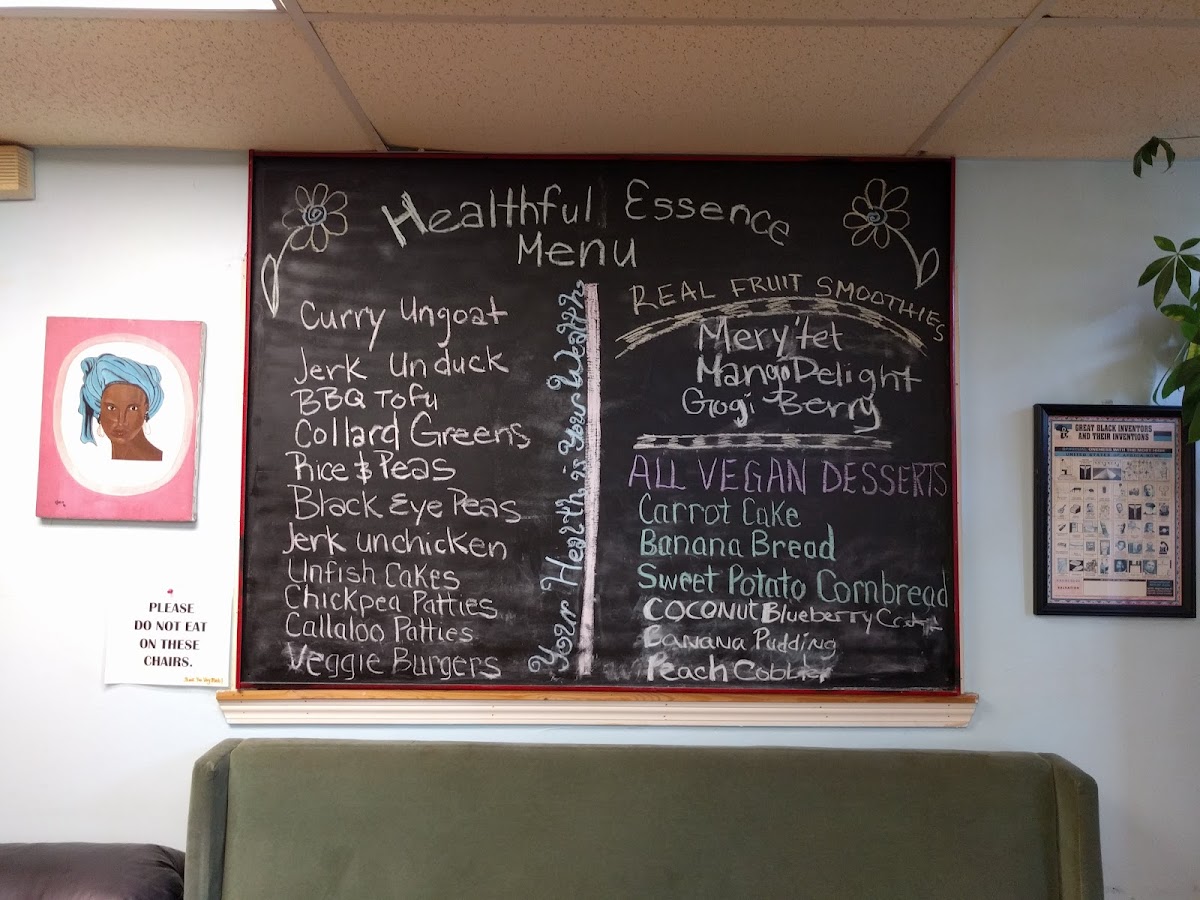 Healthful Essence
Menu
Curry Ungoat
Jerk Unduck
BBQ Tofu
Collard Greens
Rice & Peas
Black Eye Peas
Jerk unchicken
Unfish Cakes
Chickpea Patties
Callaloo Patties
Veggie Burgers
Your Health is Your Wealth
REAL FRUIT SMOOTHIES
Mery'tet
Mango Delight
Gogi Berry
ALL VEGAN DESSERTS
Carrot Cake
Banana Bread
Sweet Potato Cornbread
COCONUT Blueberry
Banana Pudding
Peach Cobbler
PLEASE
DO NOT EAT
ON THESE
CHAIRS.
GREAT BLACK INVENTORS
AND THEIR INVENTIONS